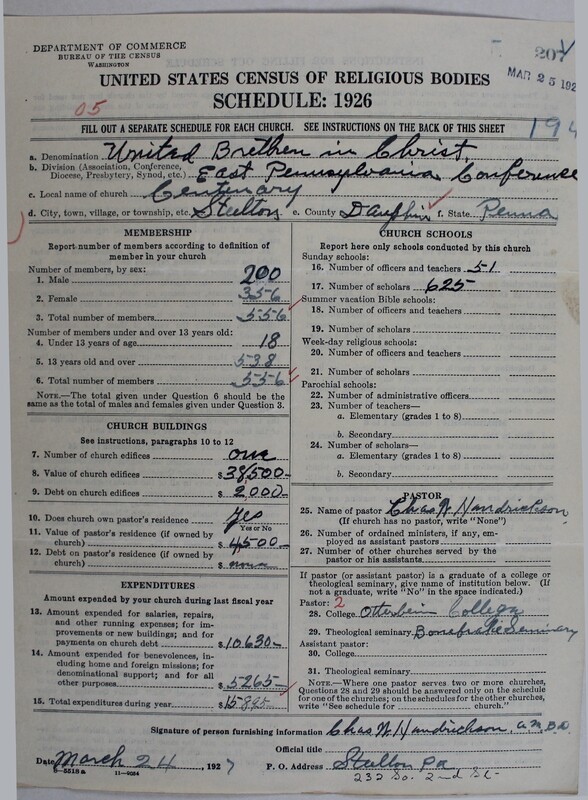 DEPARTMENT OF COMMERCE
BUREAU OF THE CENSUS
WASHINGTON
207
MAR 25 192
UNITED STATES CENSUS OF RELIGIOUS BODIES
SCHEDULE: 1926
05
FILL OUT A SEPARATE SCHEDULE FOR EACH CHURCH. SEE INSTRUCTIONS ON THE BACK OF THIS SHEET
194
a. Denomination United Brethen in Christ
b. Division (Association, Conference, Diocese, Presbytery, Synod, etc.) East Pennsylvania Conference
c. Local name of church Centenary
d. City, town, village, or township, etc. Steelton e. County Dauphin f. State Penna
MEMBERSHIP
Report number of members according to definition of
member in your church
Number of members, by sex:
1. Male 200
2. Female 356
3. Total number of members 556
Number of members under and over 13 years old:
4. Under 13 years of age 18
5. 13 years old and over 538
6. Total number of members 556
NOTE.—The total given under Question 6 should be the
same as the total of males and females given under Question 3.
CHURCH BUILDINGS
See instructions, paragraphs 10 to 12
7. Number of church edifices one
8. Value of church edifices $38,500-
9. Debt on church edifices $2,000-
10. Does church own pastor's residence Yes
Yes or No
11. Value of pastor's residence (if owned by
church) $4,500-
12. Debt on pastor's residence (if owned by
church) $none
EXPENDITURES
Amount expended by your church during last fiscal year
13. Amount expended for salaries, repairs,
and other running expenses; for im-
provements or new buildings; and for
payments on church debt $10,630-
14. Amount expended for benevolences, in-
cluding home and foreign missions; for
denominational support; and for all
other purposes $5,265-
15. Total expenditures during year $15,895-
CHURCH SCHOOLS
Report here only schools conducted by this church
Sunday schools:
16. Number of officers and teachers 51
17. Number of scholars 625
Summer vacation Bible schools:
18. Number of officers and teachers
19. Number of scholars
Week-day religious schools:
20. Number of officers and teachers
21. Number of scholars
Parochial schools:
22. Number of administrative officers
23. Number of teachers—
a. Elementary (grades 1 to 8)
b. Secondary
24. Number of scholars—
a. Elementary (grades 1 to 8)
b. Secondary
PASTOR
25. Name of pastor Chas W Hendrickson
(If church has no pastor, write "None")
26. Number of ordained ministers, if any, em-
ployed as assistant pastors
27. Number of other churches served by the
pastor or his assistants
If pastor (or assistant pastor) is a graduate of a college or
theological seminary, give name of institution below. (If
not a graduate, write "No" in the space indicated.)
Pastor: 2
28. College Otterbein College
29. Theological seminary Bonebrake Seminary
Assistant pastor:
30. College
31. Theological seminary
NOTE.—Where one pastor serves two or more churches,
Questions 28 and 29 should be answered only on the schedule
for one of the churches; on the schedules for the other churches,
write "See schedule for church."
Signature of person furnishing information Chas. W. Hendrickson, A.M. B.D.
Official title
Date March 24, 1927 P. O. Address Steelton Pa
232 So. 2nd St-
8—5518 a 11—9064